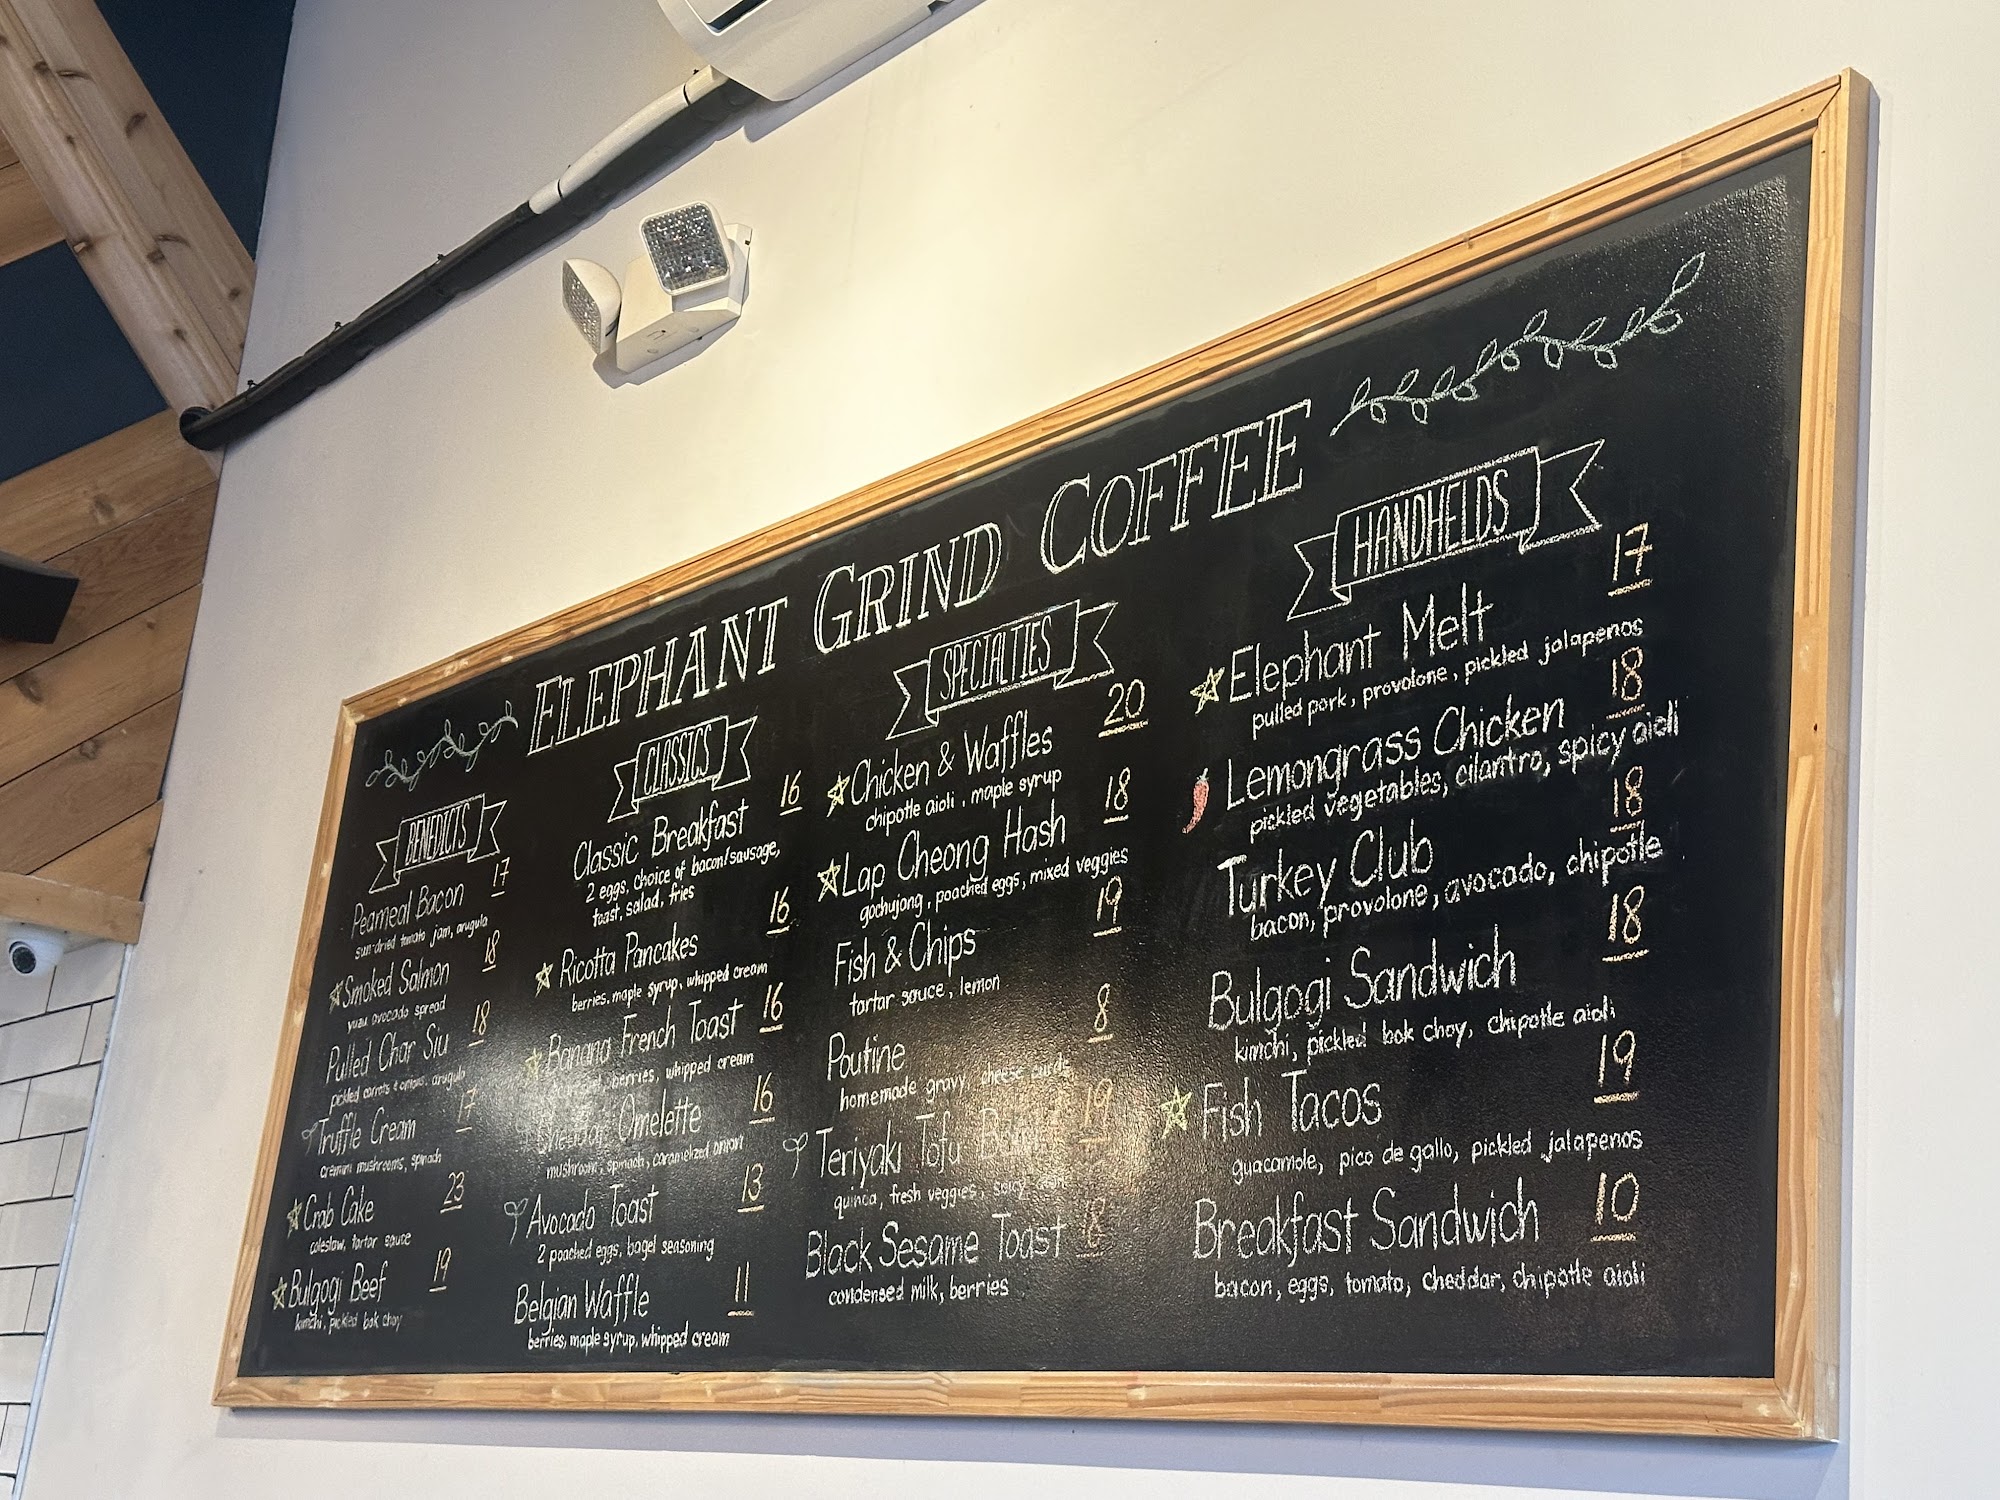 ELEPHANT GRIND COFFEE
BENEDICTS
Peameal Bacon 17
sun-dried tomato jam, arugula
Smoked Salmon 18
yuzu avocado spread
Pulled Char Siu 18
pickled carrots & onions, arugula
Truffle Cream 17
cremini mushrooms, spinach
Crab Cake 23
coleslaw, tartar sauce
Bulgogi Beef 19
kimchi, pickled bok choy
CLASSICS
Classic Breakfast 16
2 eggs, choice of bacon/sausage,
toast, salad, fries
Ricotta Pancakes 16
berries, maple syrup, whipped cream
Banana French Toast 16
berries, whipped cream
Omelette 16
mushroom, spinach, caramelized onion
Avocado Toast 13
2 poached eggs, bagel seasoning
Belgian Waffle 11
berries, maple syrup, whipped cream
SPECIALTIES
Chicken & Waffles 20
chipotle aioli, maple syrup
Lap Cheong Hash 18
gochujong, poached eggs, mixed veggies
Fish & Chips 19
tartar sauce, lemon
Poutine 8
homemade gravy, cheese curds
Teriyaki Tofu 19
quinoa, fresh veggies, spicy
Black Sesame Toast 18
condensed milk, berries
HANDHELDS
Elephant Melt 17
pulled pork, provolone, pickled jalapenos
Lemongrass Chicken 18
pickled vegetables, cilantro, spicy aioli
Turkey Club 18
bacon, provolone, avocado, chipotle
Bulgogi Sandwich 18
kimchi, pickled bok choy, chipotle aioli
Fish Tacos 19
guacamole, pico de gallo, pickled jalapenos
Breakfast Sandwich 10
bacon, eggs, tomato, cheddar, chipotle aioli